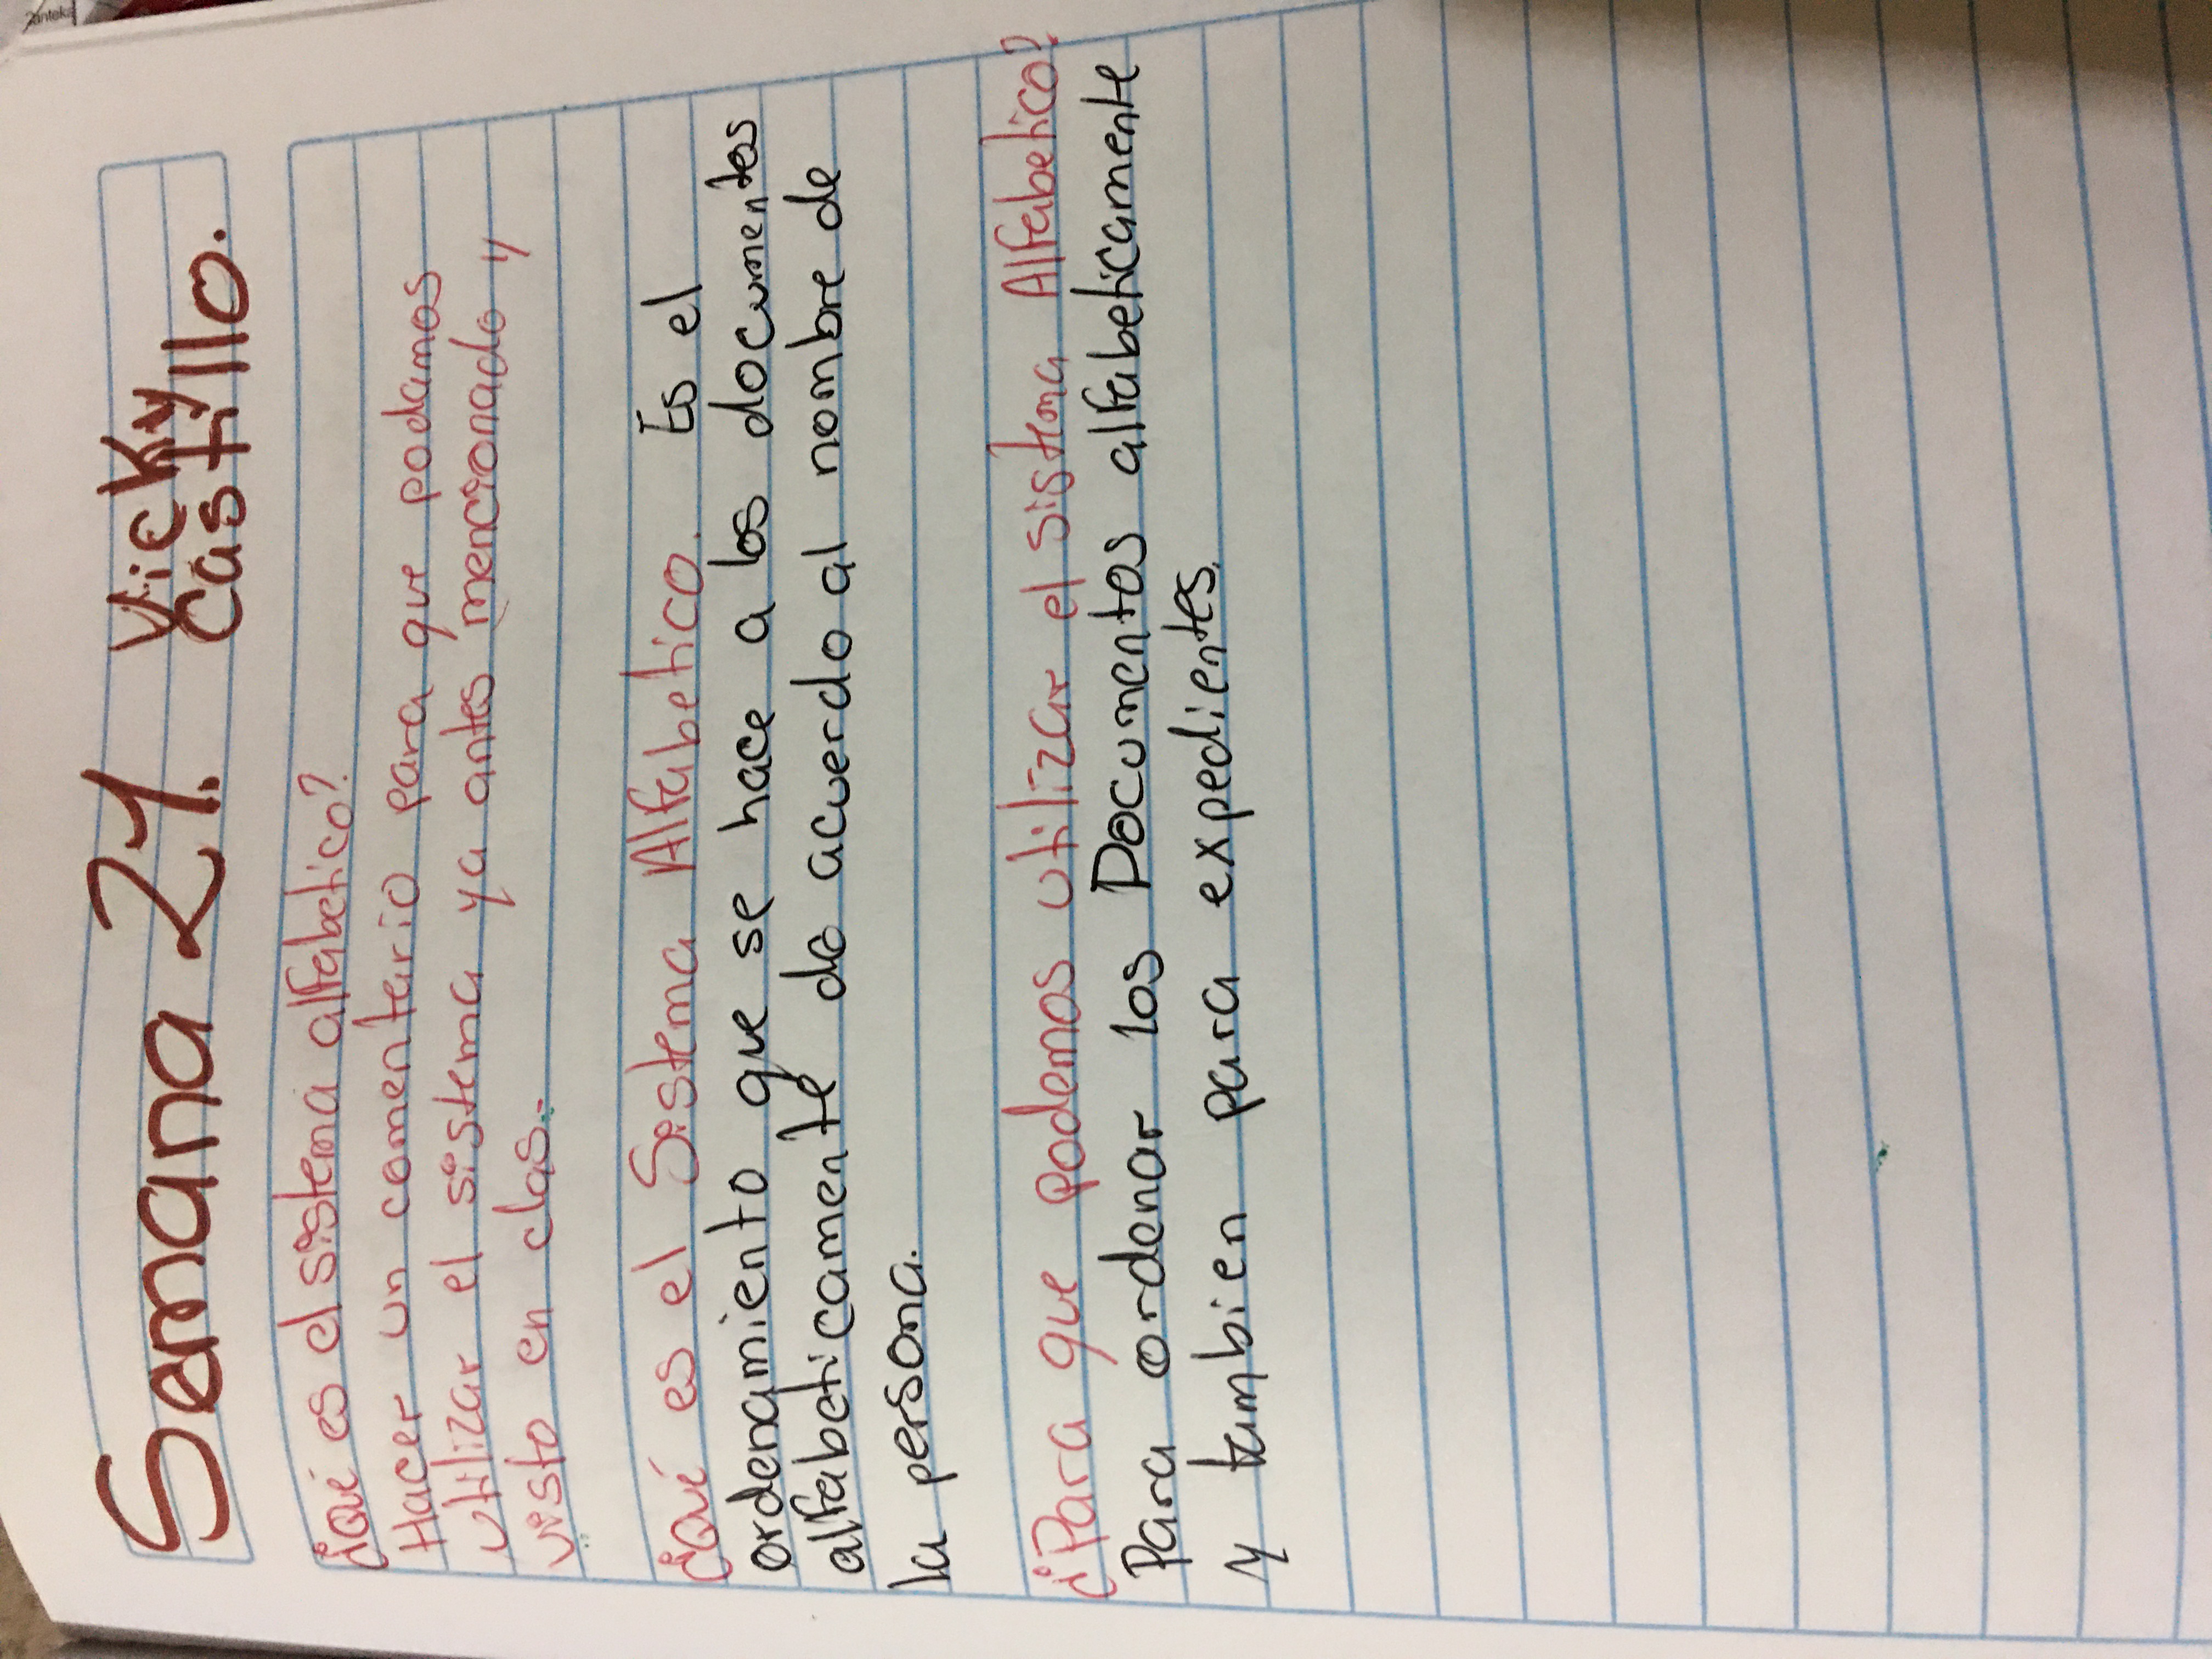 Semana 21. Vicky
Castillo.
¿Qué es el sistema alfabetico?
Hacer un comentario para que podamos
utilizar el sistema ya antes mencionado y
visto en clas.-
¿Qué es el Sistema Alfabetico. Es el
ordenamiento que se hace a los documentos
alfabeticamente de acuerdo al nombre de
la persona.
¿Para que podemos utilizar el sistema Alfabetico?
Para ordenar los Documentos alfabeticamente
y tambien para expedientes.